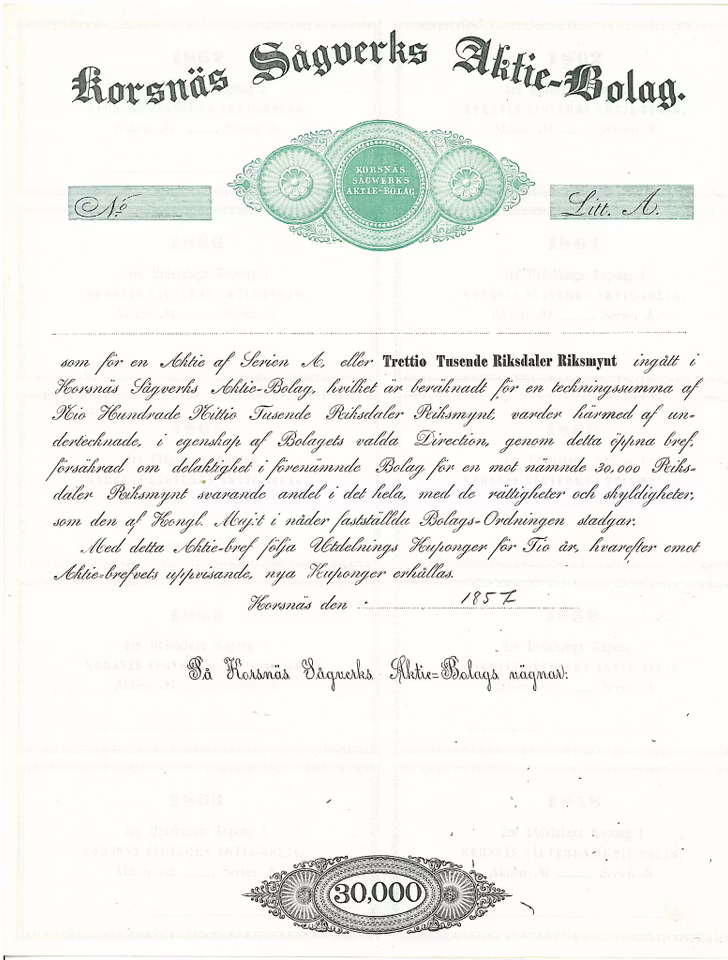 Korsnäs Sågverks Aktie-Bolag.
KORSNÄS
SÅGWERKS
AKTIE-BOLAG.
No
Litt. A.
som för en Aktie af Serien A, eller Trettio Tusende Riksdaler Riksmynt ingått i
Korsnäs Sågverks Aktie-Bolag, hvilket är beräknadt för en teckningssumma af
Nio Hundrade Nittio Tusende Riksdaler Riksmynt, varder härmed af un-
dertecknade, i egenskap af Bolagets valda Direction, genom detta öppna bref,
försäkrad om delaktighet i förenämnde Bolag för en mot nämnde 30,000 Riks-
daler Riksmynt svarande andel i det hela, med de rättigheter och skyldigheter,
som den af Kongl. Maj:t i nåder fastställda Bolags-Ordningen stadgar.
Med detta Aktie-bref följa Utdelnings Kuponger för Tio år, hvarefter emot
Aktie-brefvets uppvisande, nya Kuponger erhållas.
Korsnäs den 1857
På Korsnäs Sågverks Aktie-Bolags vägnar:
30,000